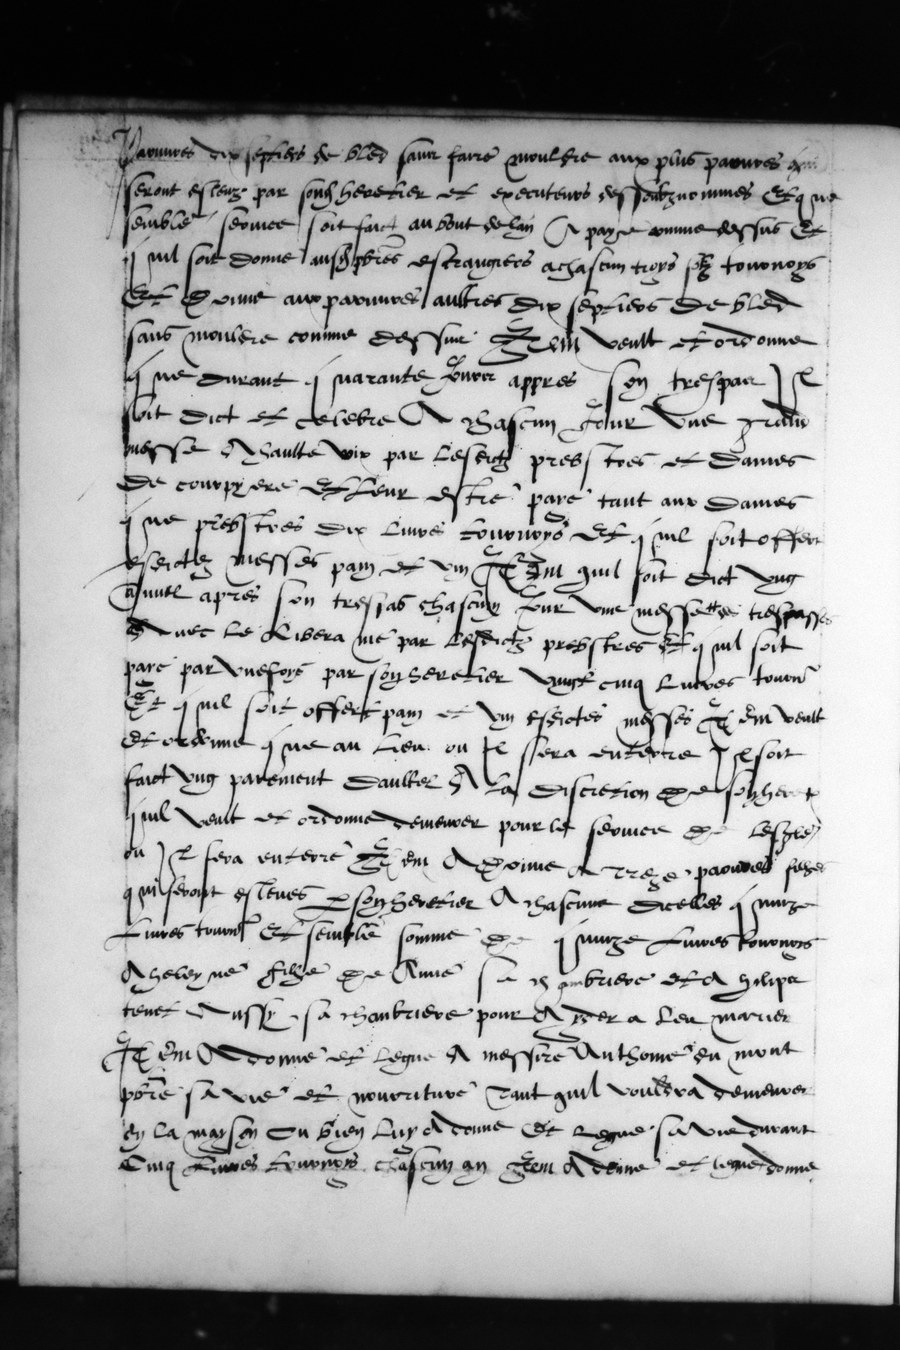 Pauvres dix septiers de bled sans faire mouldre aux plus pauvres qui
seront esleuz par son heretier et executeurs dessoubznommes Et que
semblé service soit faict au bout de lan A paye comme dessus Et
quil soit donne aush pbres estrangiers a chascun troys solz tournoys
Et donne aux pauvres aultres dix septiers de bled
sans mouldre comme dessus Item veult et ordonne
que durant quarante jours appres son trespas Il
soit dict et celebre A chascun jour une grand
messe A haulte voix par lesdictz prebstres et dames
de courpyere et leur estre paye tant aux dames
que prebstres dix livres tournoys Et quil soit offert
esdictes messes pain et vin Item quil soit dict ung
annuel apres son trespas chascun jour une messe des trespasses
Avec le Libera me par lesdictz prebstres Et quil soit
paye par unefoys par son heretier vingt cinq Livres tourn
Et quil soit offert pain et vin esdictes messes Item veult
et ordonne que au lieu ou Il sera enterre Il soit
faict ung parement daultel A la discretion de son heret
quil veult et ordonne demeurer pour le service de leglez
ou Il sera enterre Item A donne a treze pauvres filhes
qui seront esleues p son heretier A chascune dicelles quinze
Livres tourn Et semblé somme de quinze Livres tournoys
A heleyne filhe de Anne sa chambriere et A philipe
tenet Aussy sa chambriere pour Ayder a leu marier
Item A donne et legue A messire Anthoine du mont
pbre sa vie et nourriture Tant quil vouldra demeurer
en la mayson Ou bien luy A donne Et legue sa vie durant
Cinq Livres tournoys chascun an Item A donne et legue donne